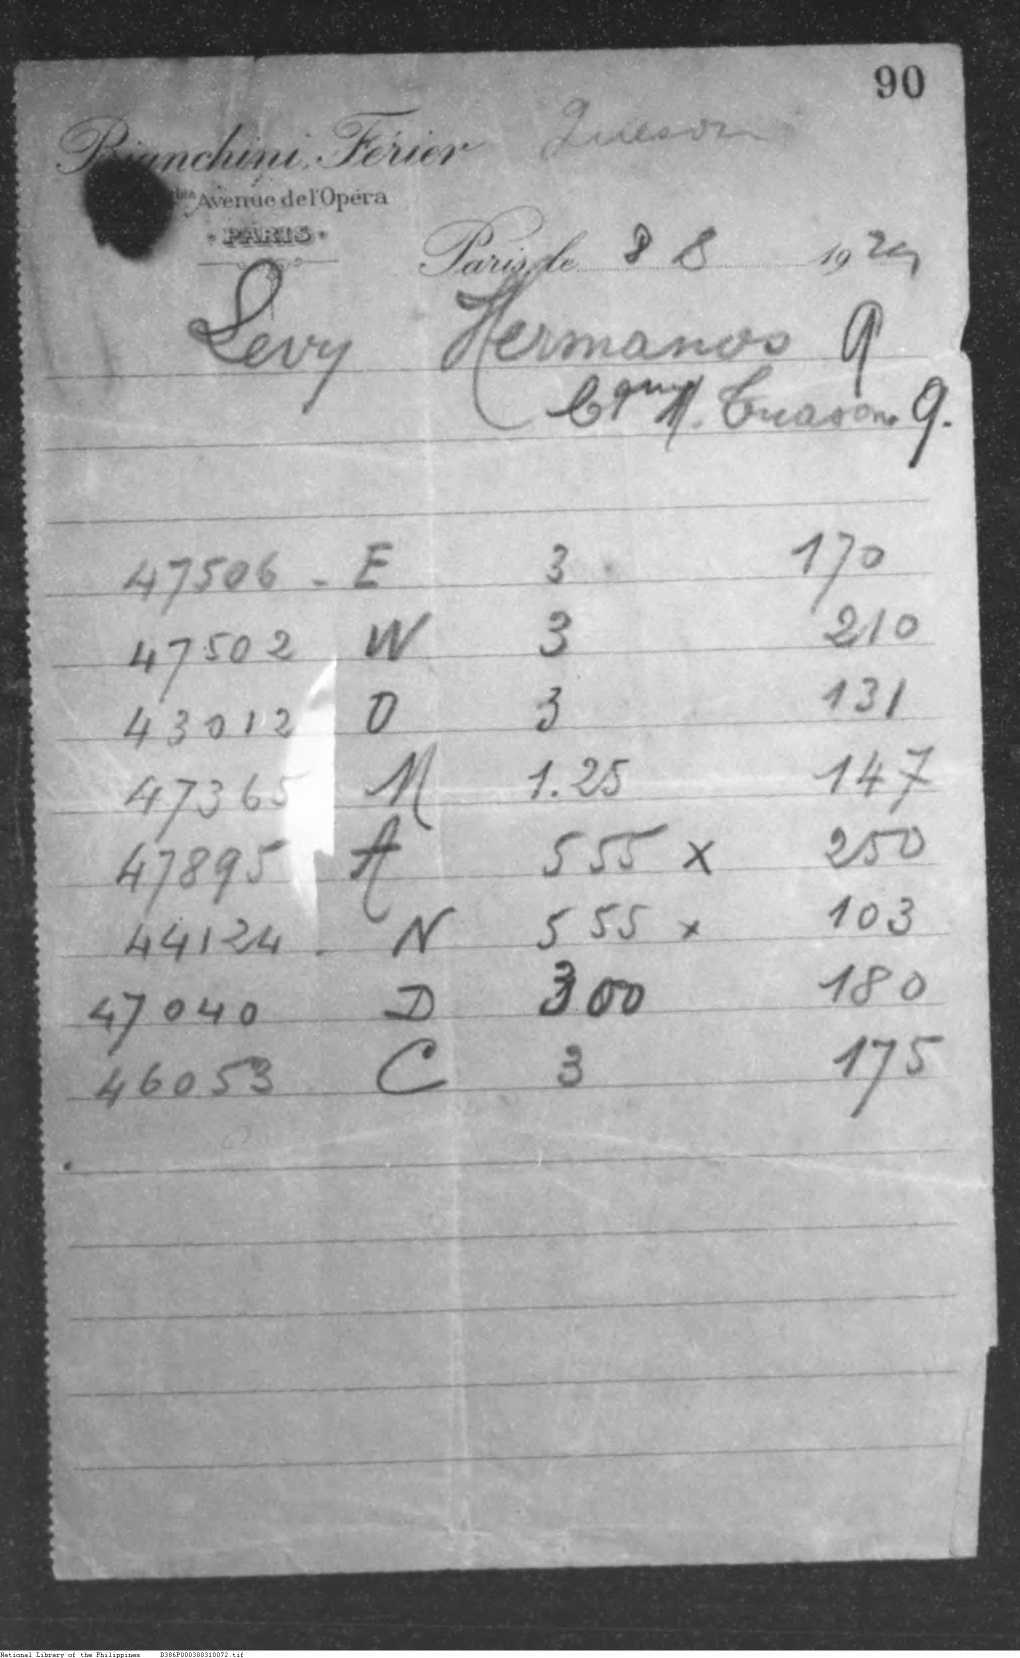 90
Bianchini, Férier
Avenue de l'Opéra
PARIS
Paris, le 8 8 192
Levy Hermanos
Tuason
47506 - E 3 170
47502 W 3 210
43012 O 3 131
47365 M 1.25 147
47895 A 5 55 x 250
44124 . N 5 55 x 103
47040 D 3.00 180
46053 C 3 175
National Library of the Philippines D386P000308310072.tif